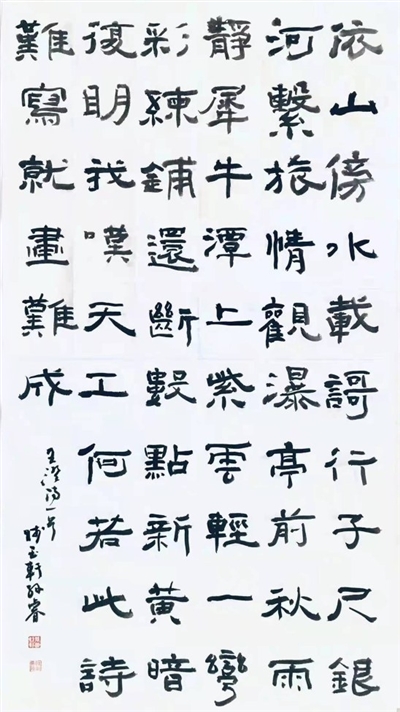 依山傍水載謌行千尺銀
河繫旅情觀瀑亭前秋雨
靜犀牛潭上紫雲輕一彎
彩練鋪還斷數點新黃暗
復明我嘆天工何若此詩
難寫就畫難成
王澄詩一首
玉軒孫睿